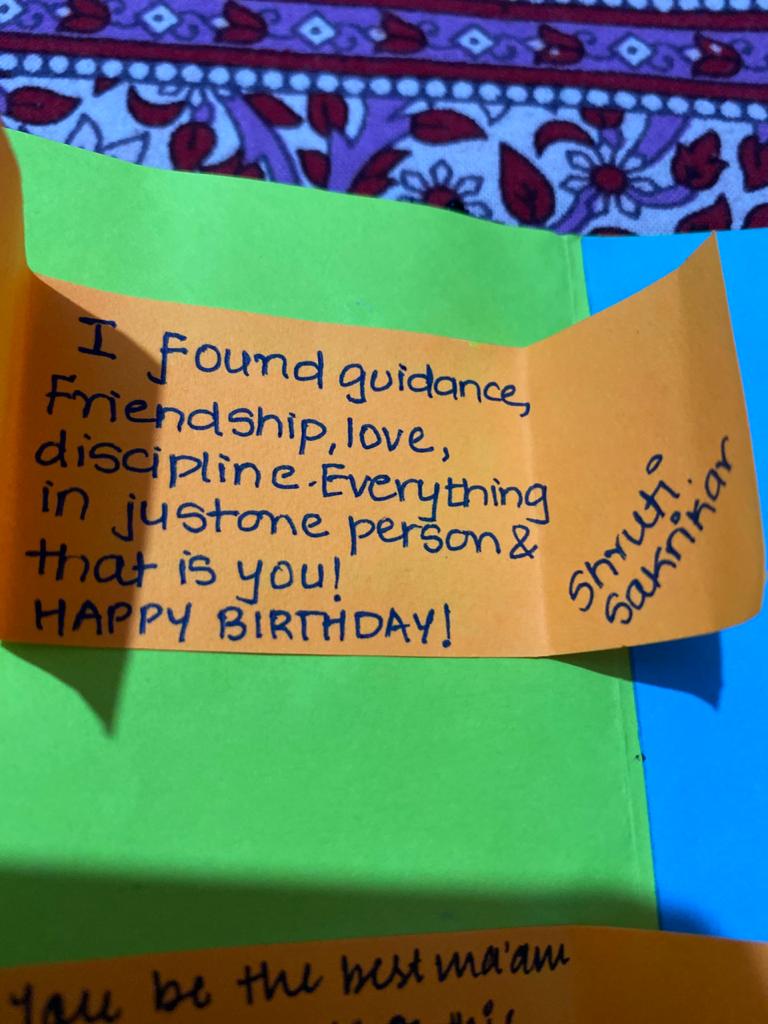 I found guidance,
Friendship, love,
discipline. Everything
in just one person &
that is you!
HAPPY BIRTHDAY!
Shruti
Saknikar
You be the best ma'am